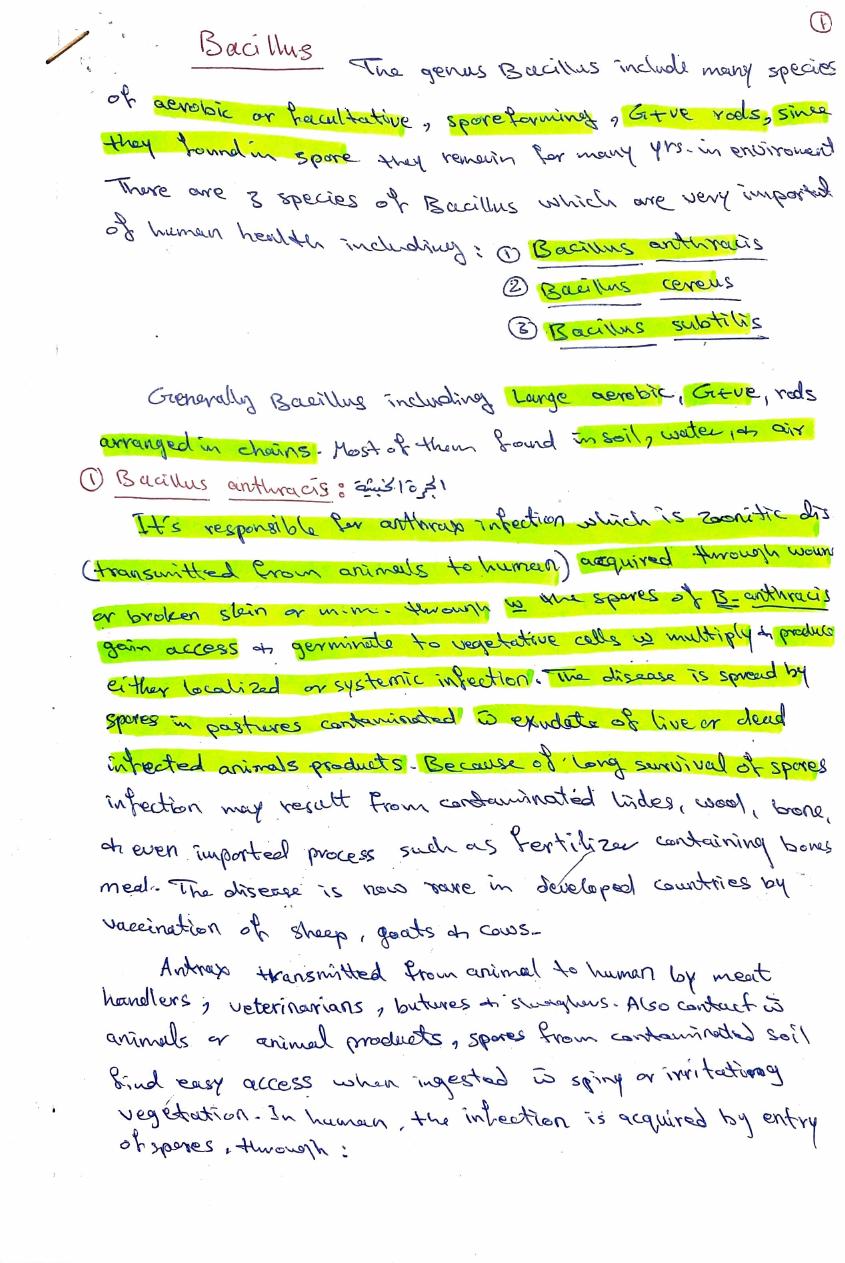 ①
Bacillus
The genus Bacillus include many species
of aerobic or facultative, sporeforming, G+ve rods, since
they found in spore they remain for many yrs. in enviroment
There are 3 species of Bacillus which are very importat
of human health including: ① Bacillus anthracis
② Bacillus cereus
③ Bacillus subtilis
Generally Bacillus including Large aerobic, G+ve, rods
arranged in chains. Most of them found in soil, water, & air
① Bacillus anthracis: الجمرة الخبيثة
It's responsible for anthrax infection which is zoonitic dis
(transmitted from animals to human) acquired through woun
or broken skin or m.m. through the spores of B. anthracis
gain access & germinate to vegetative cells multiply & produce
either localized or systemic infection. The disease is spread by
spores in pastures contaminated w̄ exudate of live or dead
infected animals products. Because of long survival of spores
infection may result from contaminated hides, wool, bone,
& even imported process such as fertilizer containing bones
meal. The disease is now rare in developed countries by
vaccination of sheep, goats & cows.
Antrax transmitted from animal to human by meat
handlers, veterinarians, butures & slaughers. Also contact w̄
animals or animal products, spores from contaminated soil
find easy access when ingested w̄ spiny or irritationg
vegetation. In human, the infection is acquired by entry
of spores, through: